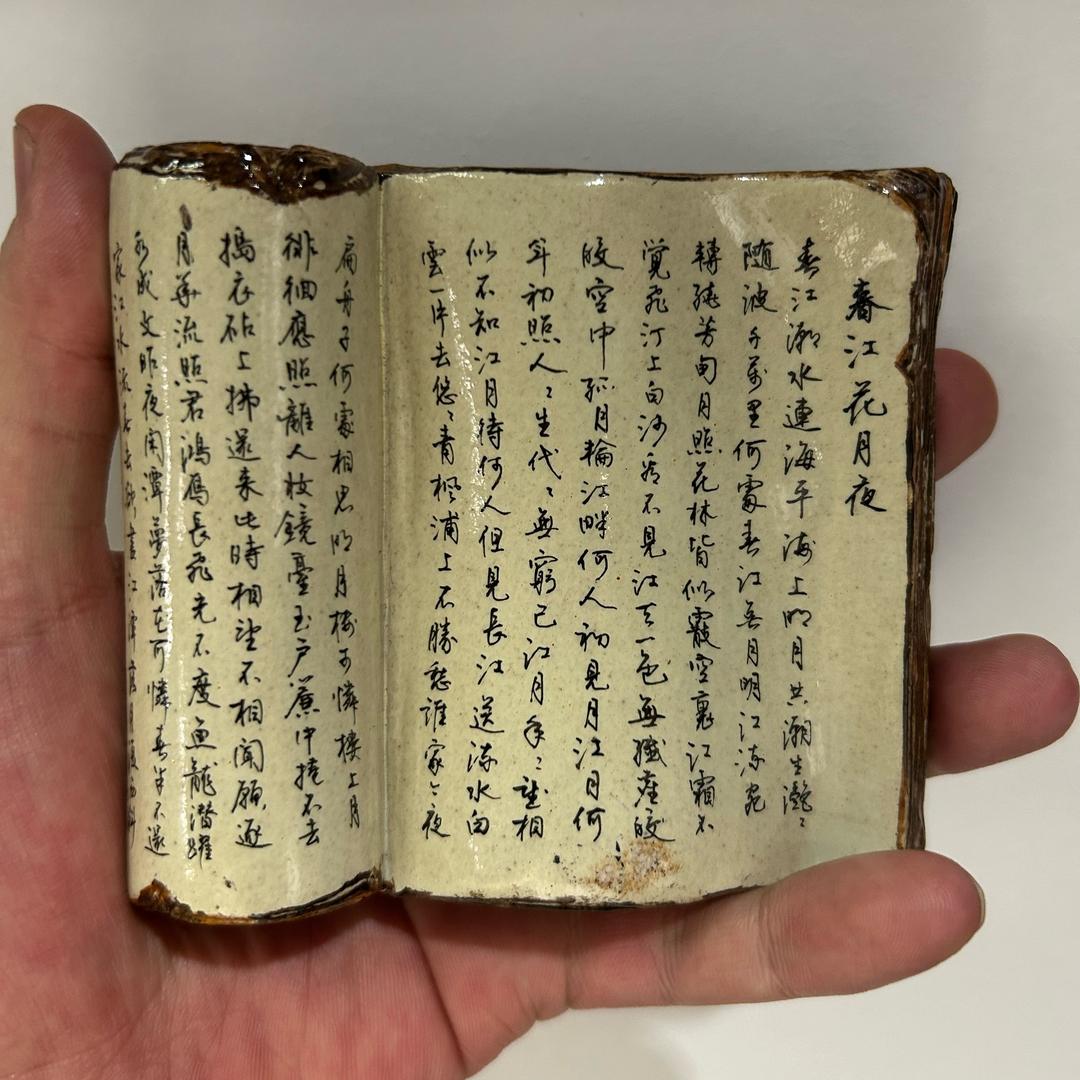 春江花月夜
春江潮水連海平海上明月共潮生灩〻
随波千萬里何處春江無月明江流宛
轉繞芳甸月照花林皆似霰空裏江霜不
覺飛汀上白沙看不見江天一色無纖塵皎
皎空中孤月輪江畔何人初見月江月何
年初照人〻生代〻無窮已江月年〻望相
似不知江月待何人但見長江送流水白
雲一片去悠〻青楓浦上不勝愁誰家今夜
扁舟子何處相思明月樓可憐樓上月
徘徊應照離人妝鏡臺玉户簾中捲不去
搗衣砧上拂還来此時相望不相聞願逐
月華流照君鴻雁長飛光不度魚龍潛躍
水成文昨夜閑潭夢落花可憐春半不還
家江水流春去欲盡江潭落月復西斜